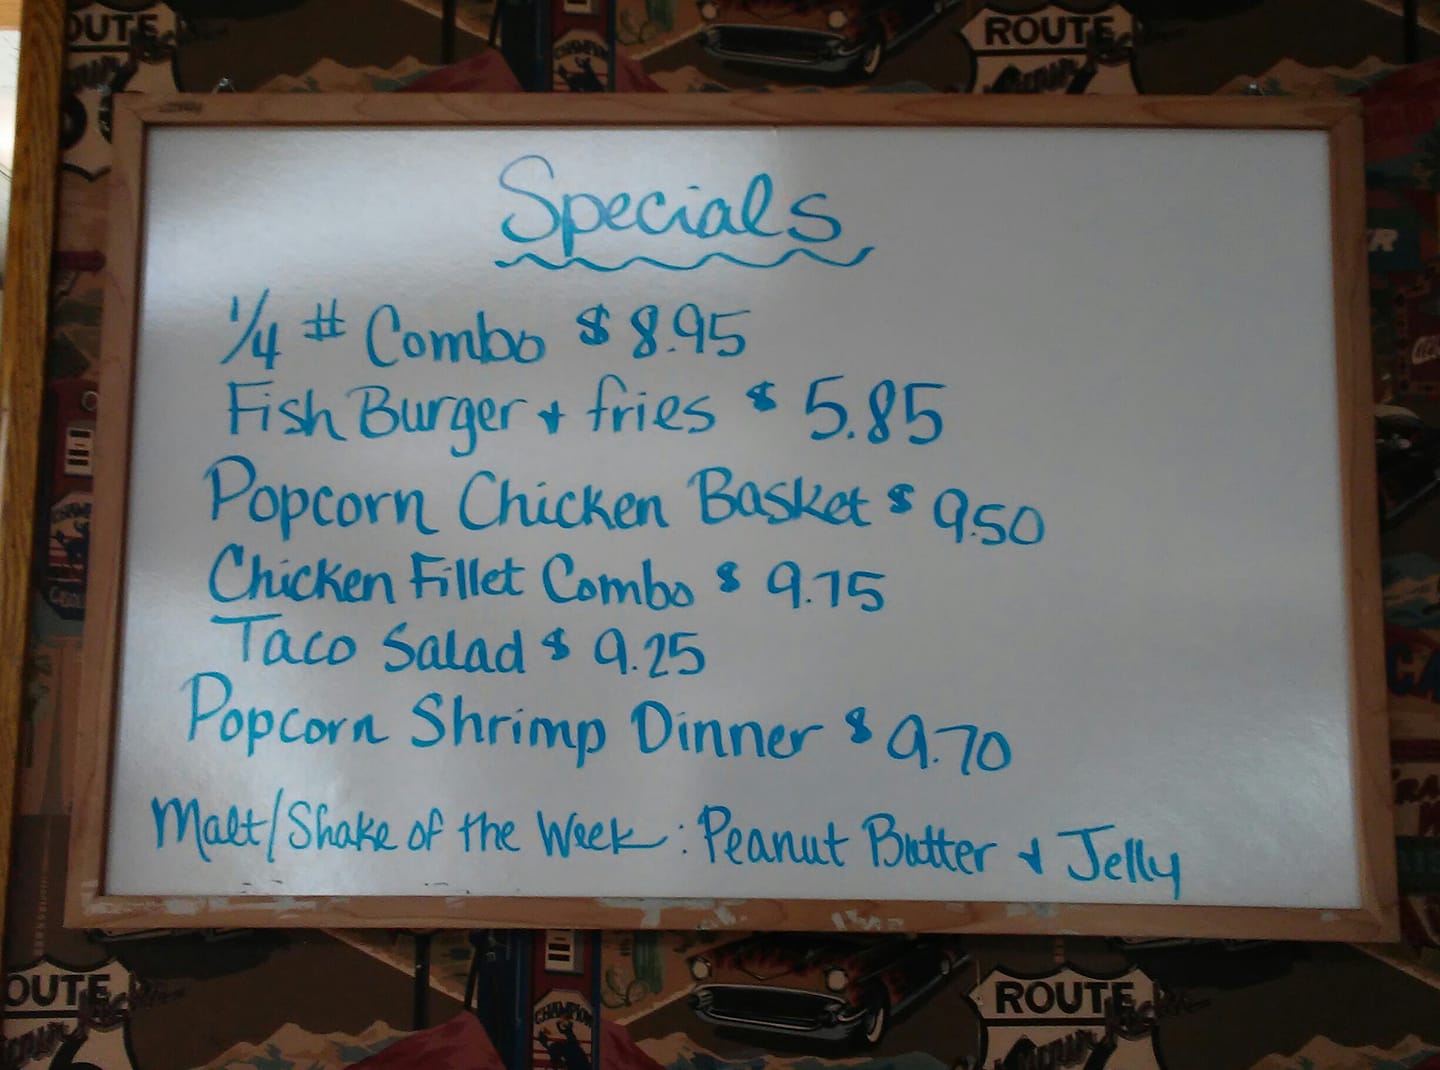 Specials
1/4 # Combo $ 8.95
Fish Burger + fries $ 5.85
Popcorn Chicken Basket $ 9.50
Chicken Fillet Combo $ 9.75
Taco Salad $ 9.25
Popcorn Shrimp Dinner $ 9.70
Malt/Shake of the Week: Peanut Butter + Jelly
OUTE
ROUTE
CHAMPION
OUTE
ROUTE
CHAMPION